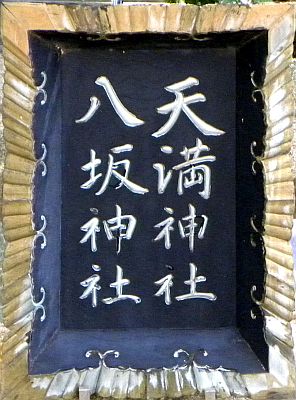 天満神社
八坂神社